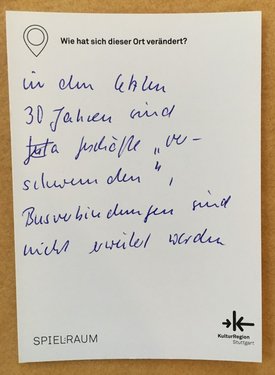 Wie hat sich dieser Ort verändert?
in den letzten
30 Jahren sind
Geschäfte „ver-
schwunden“,
Busverbindungen sind
nicht erweitet werden
SPIEL:RAUM
KulturRegion
Stuttgart